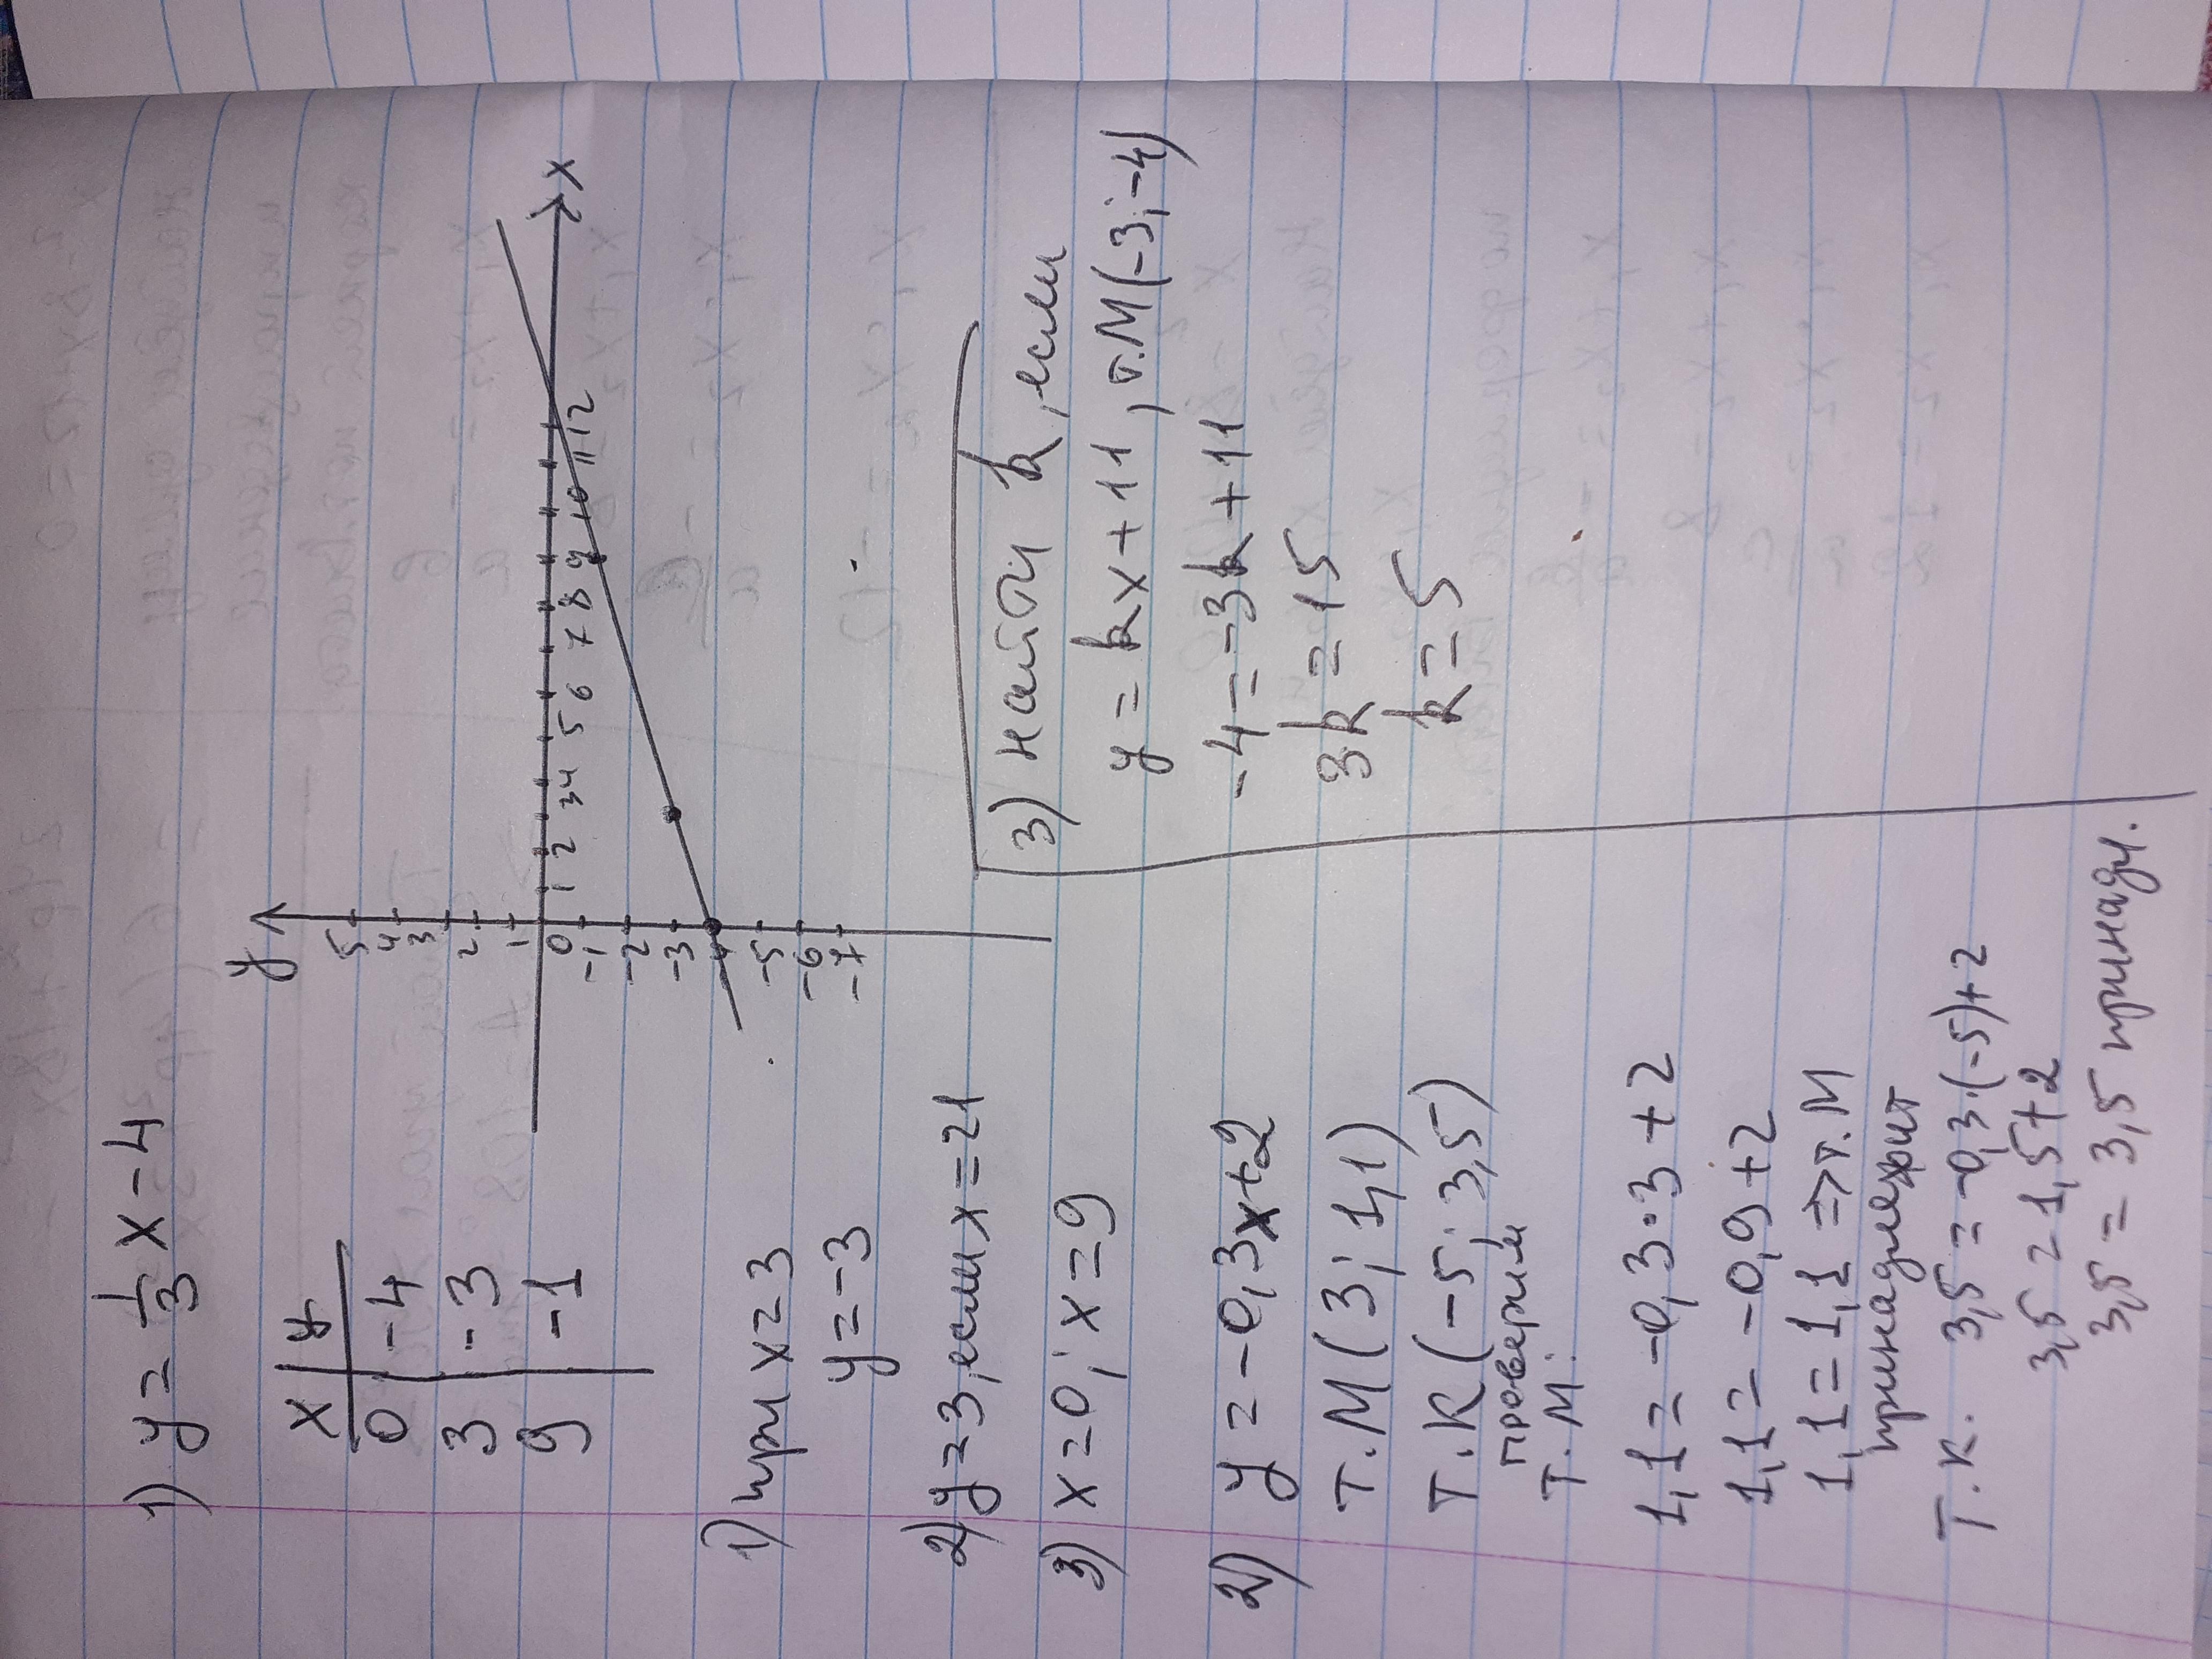 1) y = 1/3 x - 4
x | y
0 | -4
3 | -3
9 | -1
y
5
4
3
2
1
0 1 2 3 4 5 6 7 8 9 10 11 12 x
-1
-2
-3
-4
-5
-6
-7
1) при x=3
y = -3
2) y=3, если x=21
3) x=0; x=9
2) y = -0,3x+2
Т.М (3; 1,1)
Т.К (-5; 3,5)
проверим
Т.М.
1,1 = -0,3·3+2
1,1 = -0,9+2
1,1 = 1,1 => т.М
принадлежит
Т.К. 3,5 = -0,3·(-5)+2
3,5 = 1,5+2
3,5 = 3,5 принадл.
3) найти k, если
y = kx+11, т.М(-3;-4)
-4 = -3k+11
3k = 15
k = 5